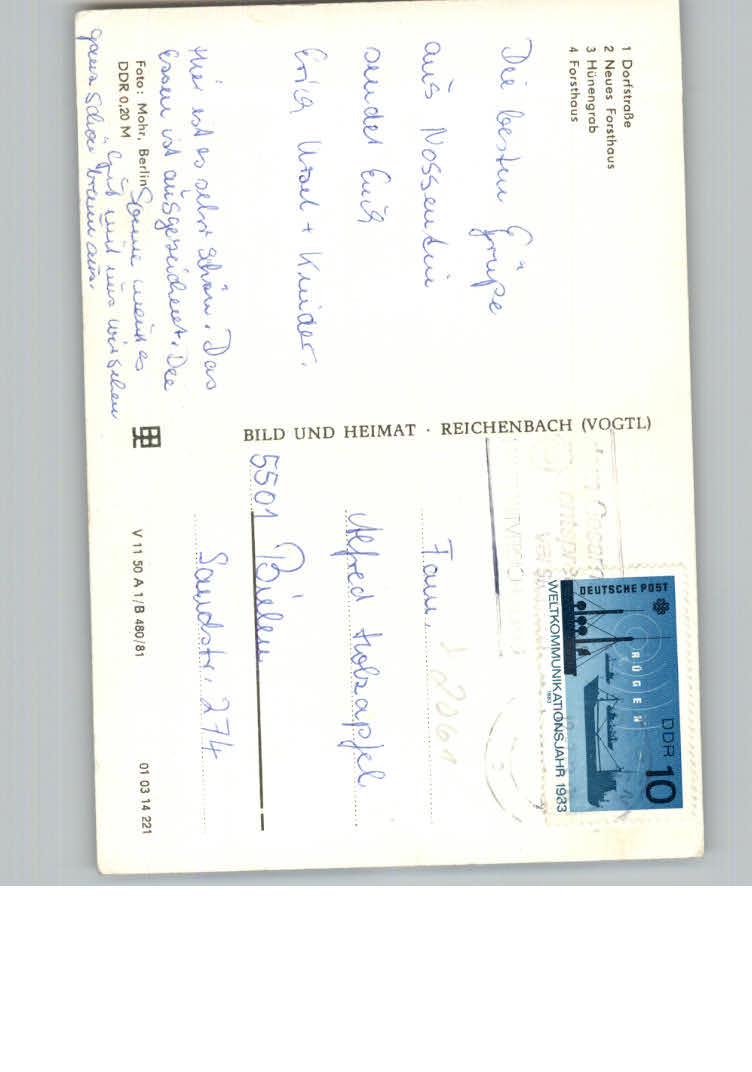 1 Dorfstraße
2 Neues Forsthaus
3 Hünengrab
4 Forsthaus
Die besten Grüße
aus Nossentin
sendet Euch
Erich Ursel + Kinder.
Hier ist es sehr schön. Das
Essen ist ausgezeichnet. Die
Sonne meint es
gut mit uns wir sehen
ganz schön braun aus.
Foto: Mohr, Berlin
DDR 0,20 M
BILD UND HEIMAT · REICHENBACH (VOGTL)
DEUTSCHE POST
RÜGEN
DDR
10
WELTKOMMUNIKATIONSJAHR 1983
1983
Fam.
2061
Alfred Holzapfel
5501 Bielen
Sandstr. 274
V 11 50 A 1/B 480/81
01 03 14 221